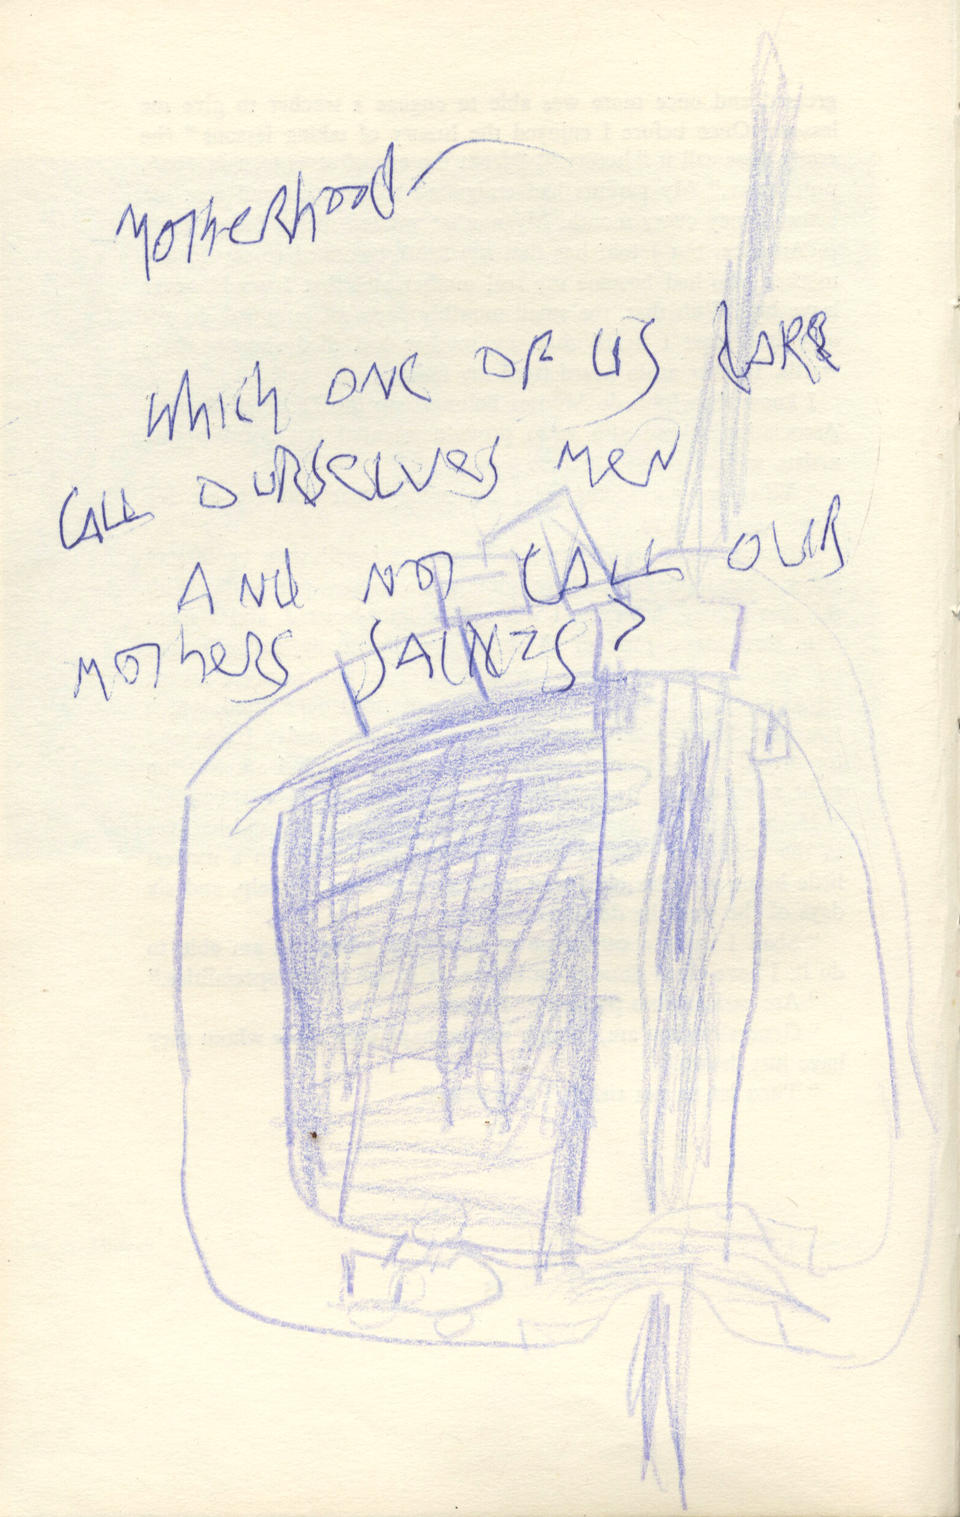 Motherhood
Which one of us dare
call ourselves men
and not call our
mothers saints?